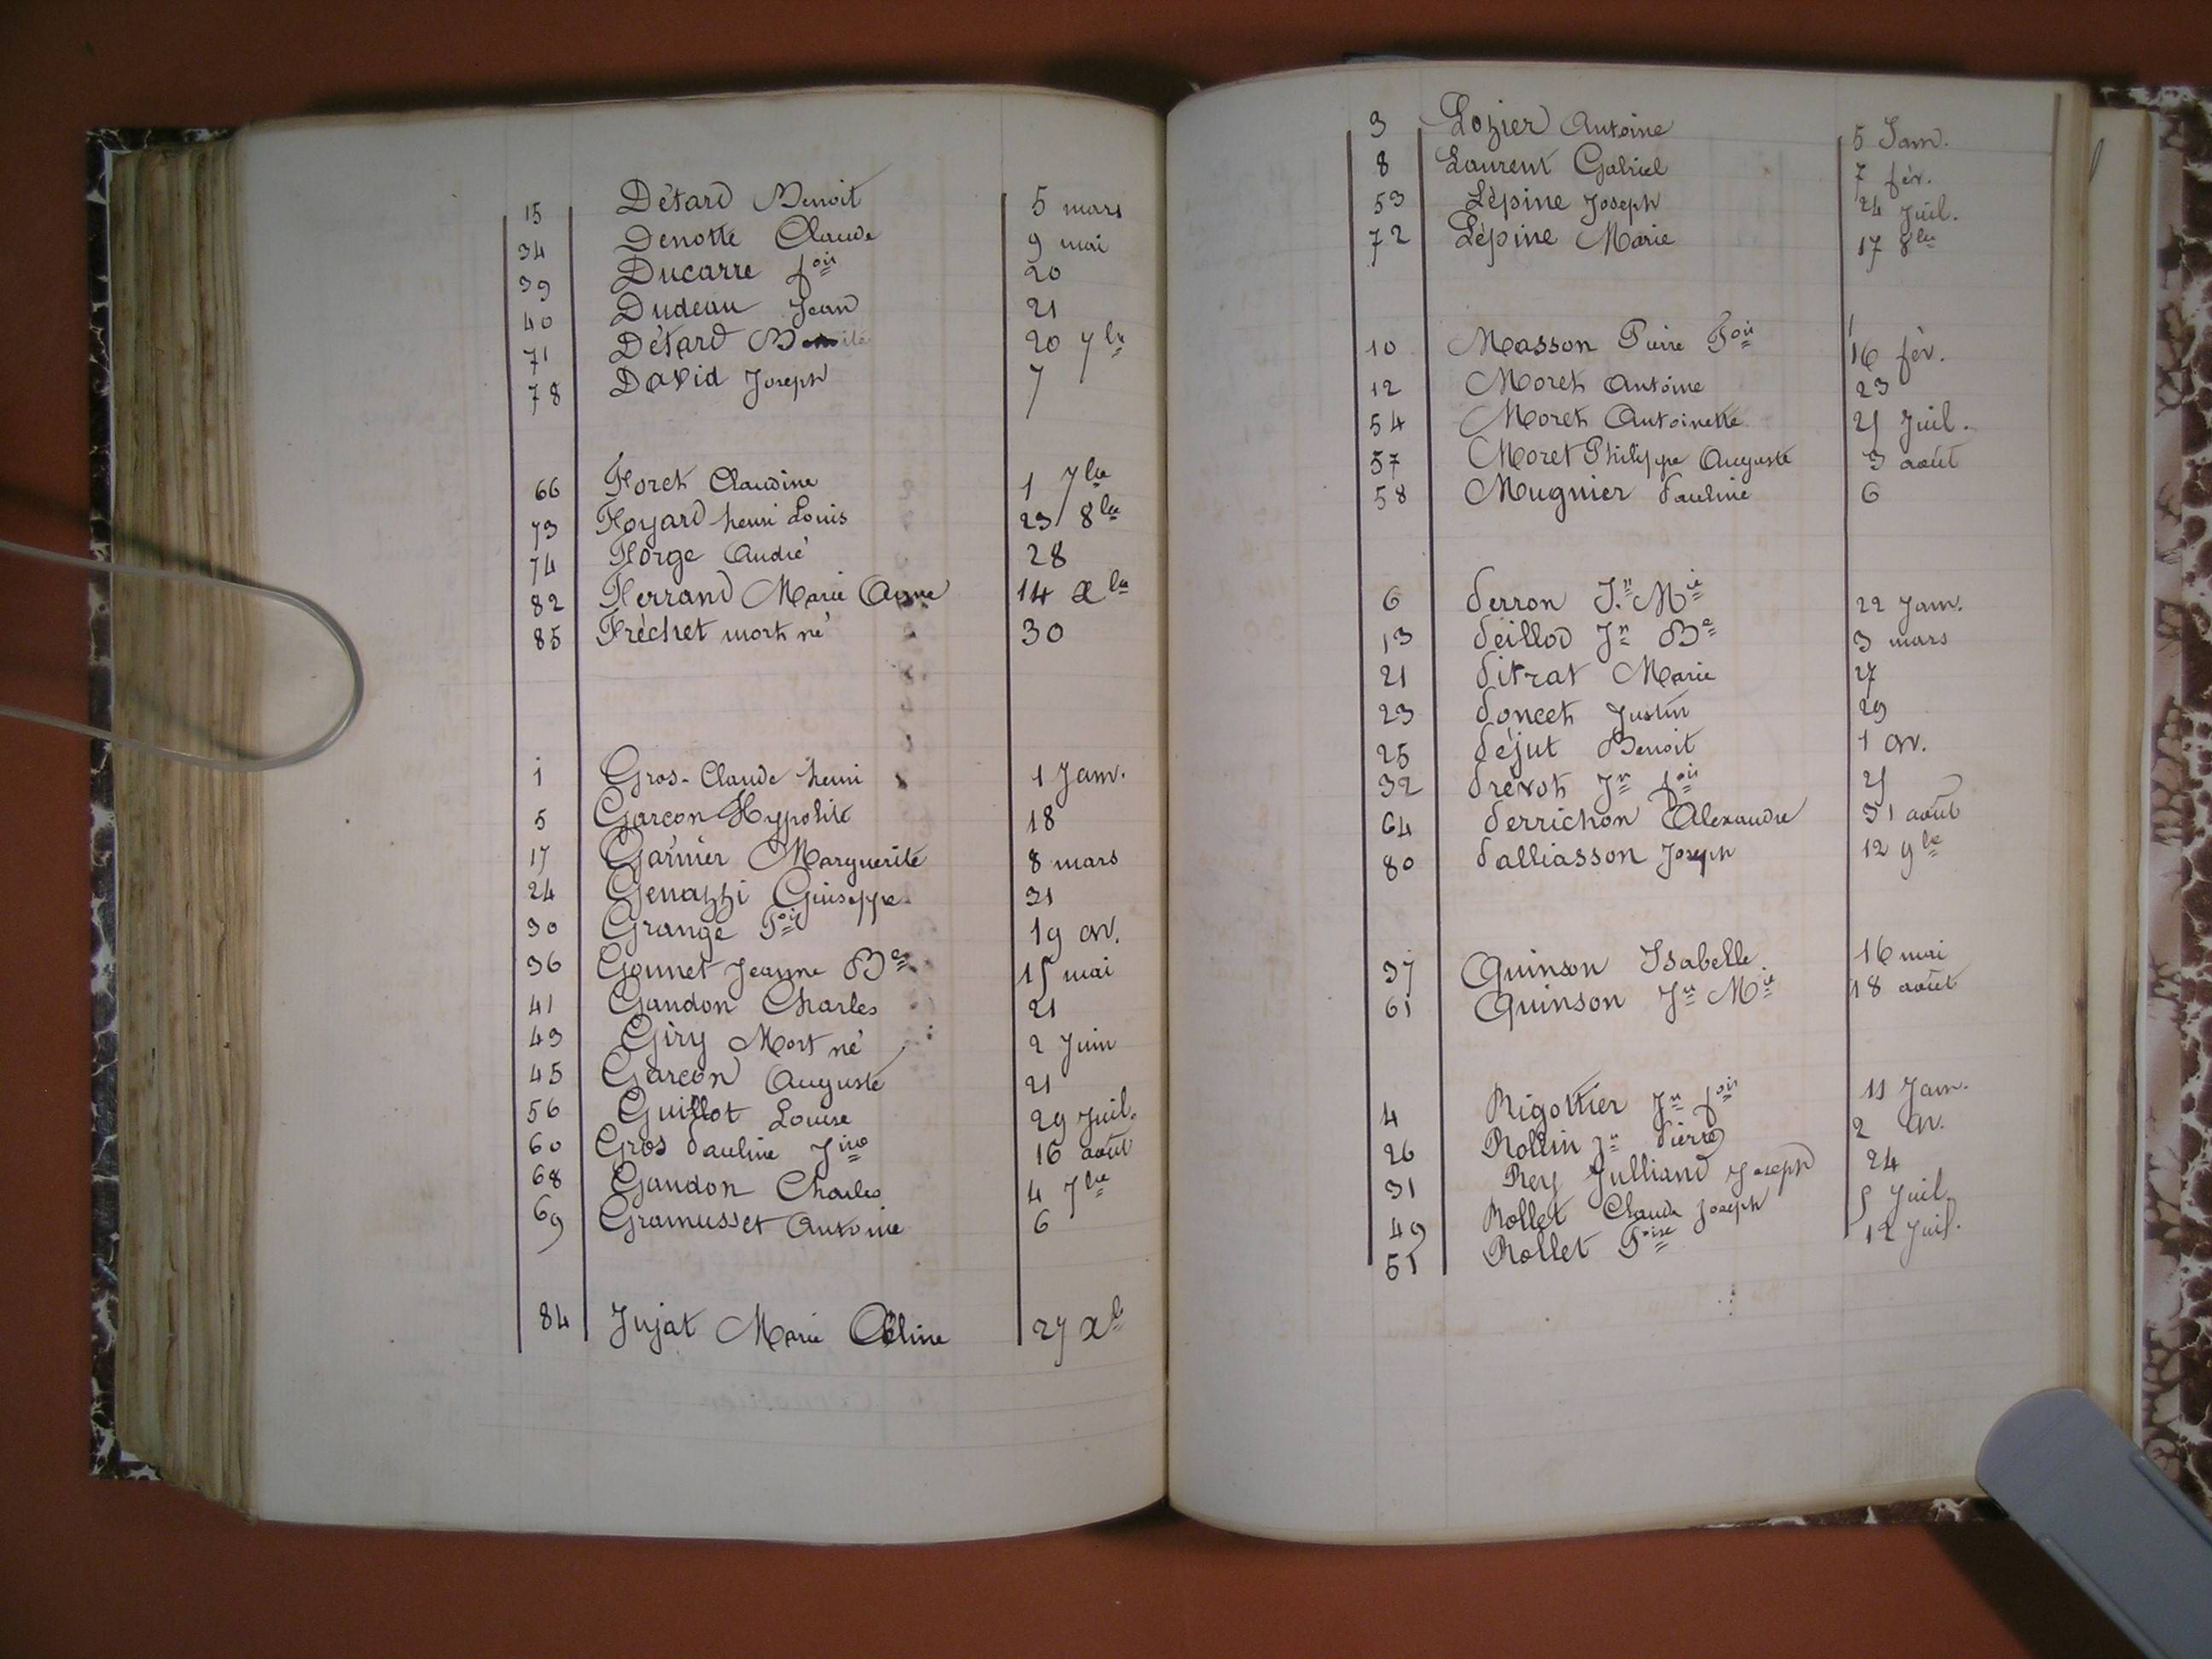 15 Détard Benoit 5 mars
34 Denotte Claude 9 mai
39 Ducarre fois 20
40 Dudeau Jean 21
71 Détard 20 7bre
78 David Joseph 7
66 Foret Claudine 1 7bre
73 Foyard henri Louis 23 8bre
74 Forge André 28
82 Ferrand Marie Anne 14 xbre
85 Fréchet mort né 30
1 Gros-Claude henri 1 Janv.
5 Garcon Hypolite 18
17 Garnier Marguerite 8 mars
24 Genazzi Guiseppe 31
30 Grange Fois 19 av.
36 Gonnet Jeanne Be 15 mai
41 Gandon Charles 21
43 Giry Mort né 2 Juin
45 Garcon Auguste 21
56 Guillot Louise 29 Juil.
60 Gros Pauline Jine 16 août
68 Gandon Charles 4 7bre
69 Gramusset Antoine 6
84 Jujat Marie 27 xbre
3 Lozier Antoine 5 Janv.
8 Laurent Gabriel 7 fév.
53 Lépine Joseph 24 Juil.
72 Lépine Marie 17 8bre
10 Masson Pierre Fois 16 fév.
12 Moret Antoine 23
54 Moret Antoinette 25 Juil.
57 Moret Philippe Auguste 3 août
58 Mugnier Pauline 6
6 Perron Jn Mie 22 Janv.
13 Peillod Jn Be 3 mars
21 Pitrat Marie 27
23 Poncet Justin 29
25 Péjut Benoit 1 av.
32 Prévot Jn fois 25
64 Perrichon Alexandre 31 août
80 Palliasson Joseph 12 9bre
37 Quinson Isabelle 16 mai
61 Quinson Jn Mie 18 août
4 Rigottier Jn fois 11 Janv.
26 Rollin Jn Pierre 2 av.
31 Rey Julliand Joseph 24
49 Rollet Claude Joseph 5 Juil.
51 Rollet Foise 12 Juil.